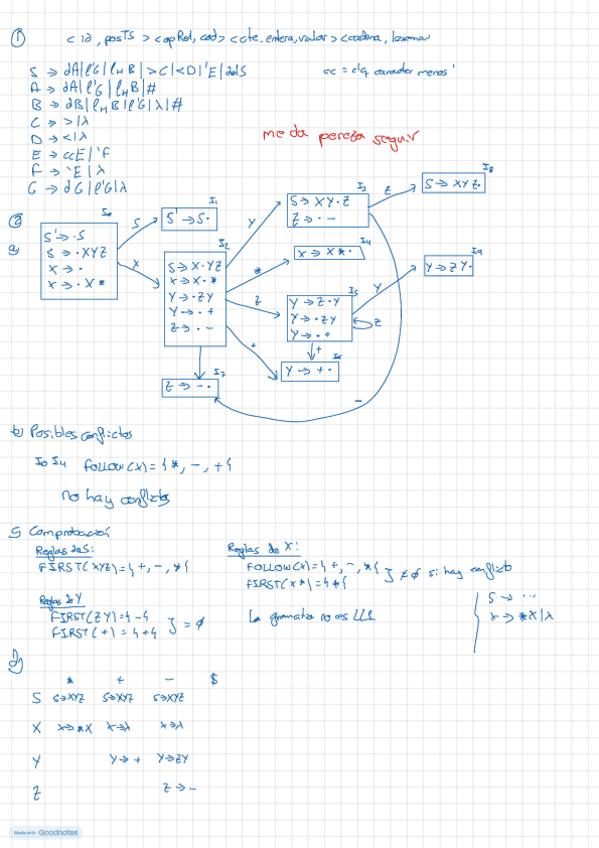 ① < id, posTS > <opRel, cod> <cte_entera, valor> <cadena, lexema
S → dA|l'G|lₘB|>C|<D|'E|delS
cc = c/q caracter menos '
A → dA|l'G|lₘB|#
B → dB|lₘB|l'G|λ|#
C → >|λ
D → <|λ
E → ccE|'F
F → 'E|λ
G → dG|l'G|λ
me da pereza seguir
②
a)
I₀
S' → ·S
S → ·XYZ
X → ·
X → ·X*
S
X
I₁
S' → S·
I₂
S → X·YZ
X → X·*
Y → ·ZY
Y → ·+
Z → ·-
Y
*
Z
+
I₃
S → XY·Z
Z → ·-
Z
I₈
S → XYZ·
I₄
X → X*·
I₅
Y → Z·Y
Y → ·ZY
Y → ·+
Y
Z
+
I₉
Y → ZY·
I₆
Y → +·
I₇
Z → -·
-
b) Posibles conflictos
I₀ I₄ FOLLOW(X)={*, -, +}
no hay conflictos
c) Comprobación
Reglas de S:
FIRST(XYZ)={+, -, *}
Reglas de X:
FOLLOW(X)={+, -, *}
FIRST(X*)={*} } ≠ ∅ si hay conflicto
Reglas de Y
FIRST(ZY)={-}
FIRST(+)={+} } = ∅
La gramatica no es LL1
S → ...
X → *X|λ
d)
* + - $
S S→XYZ S→XYZ S→XYZ
X X→*X X→λ X→λ
Y Y→+ Y→ZY
Z Z→-
Made with Goodnotes